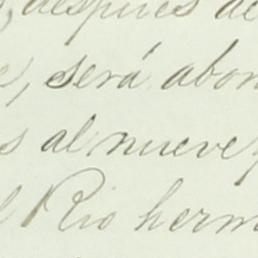 después de
será abon
al nueve p
Rio herm